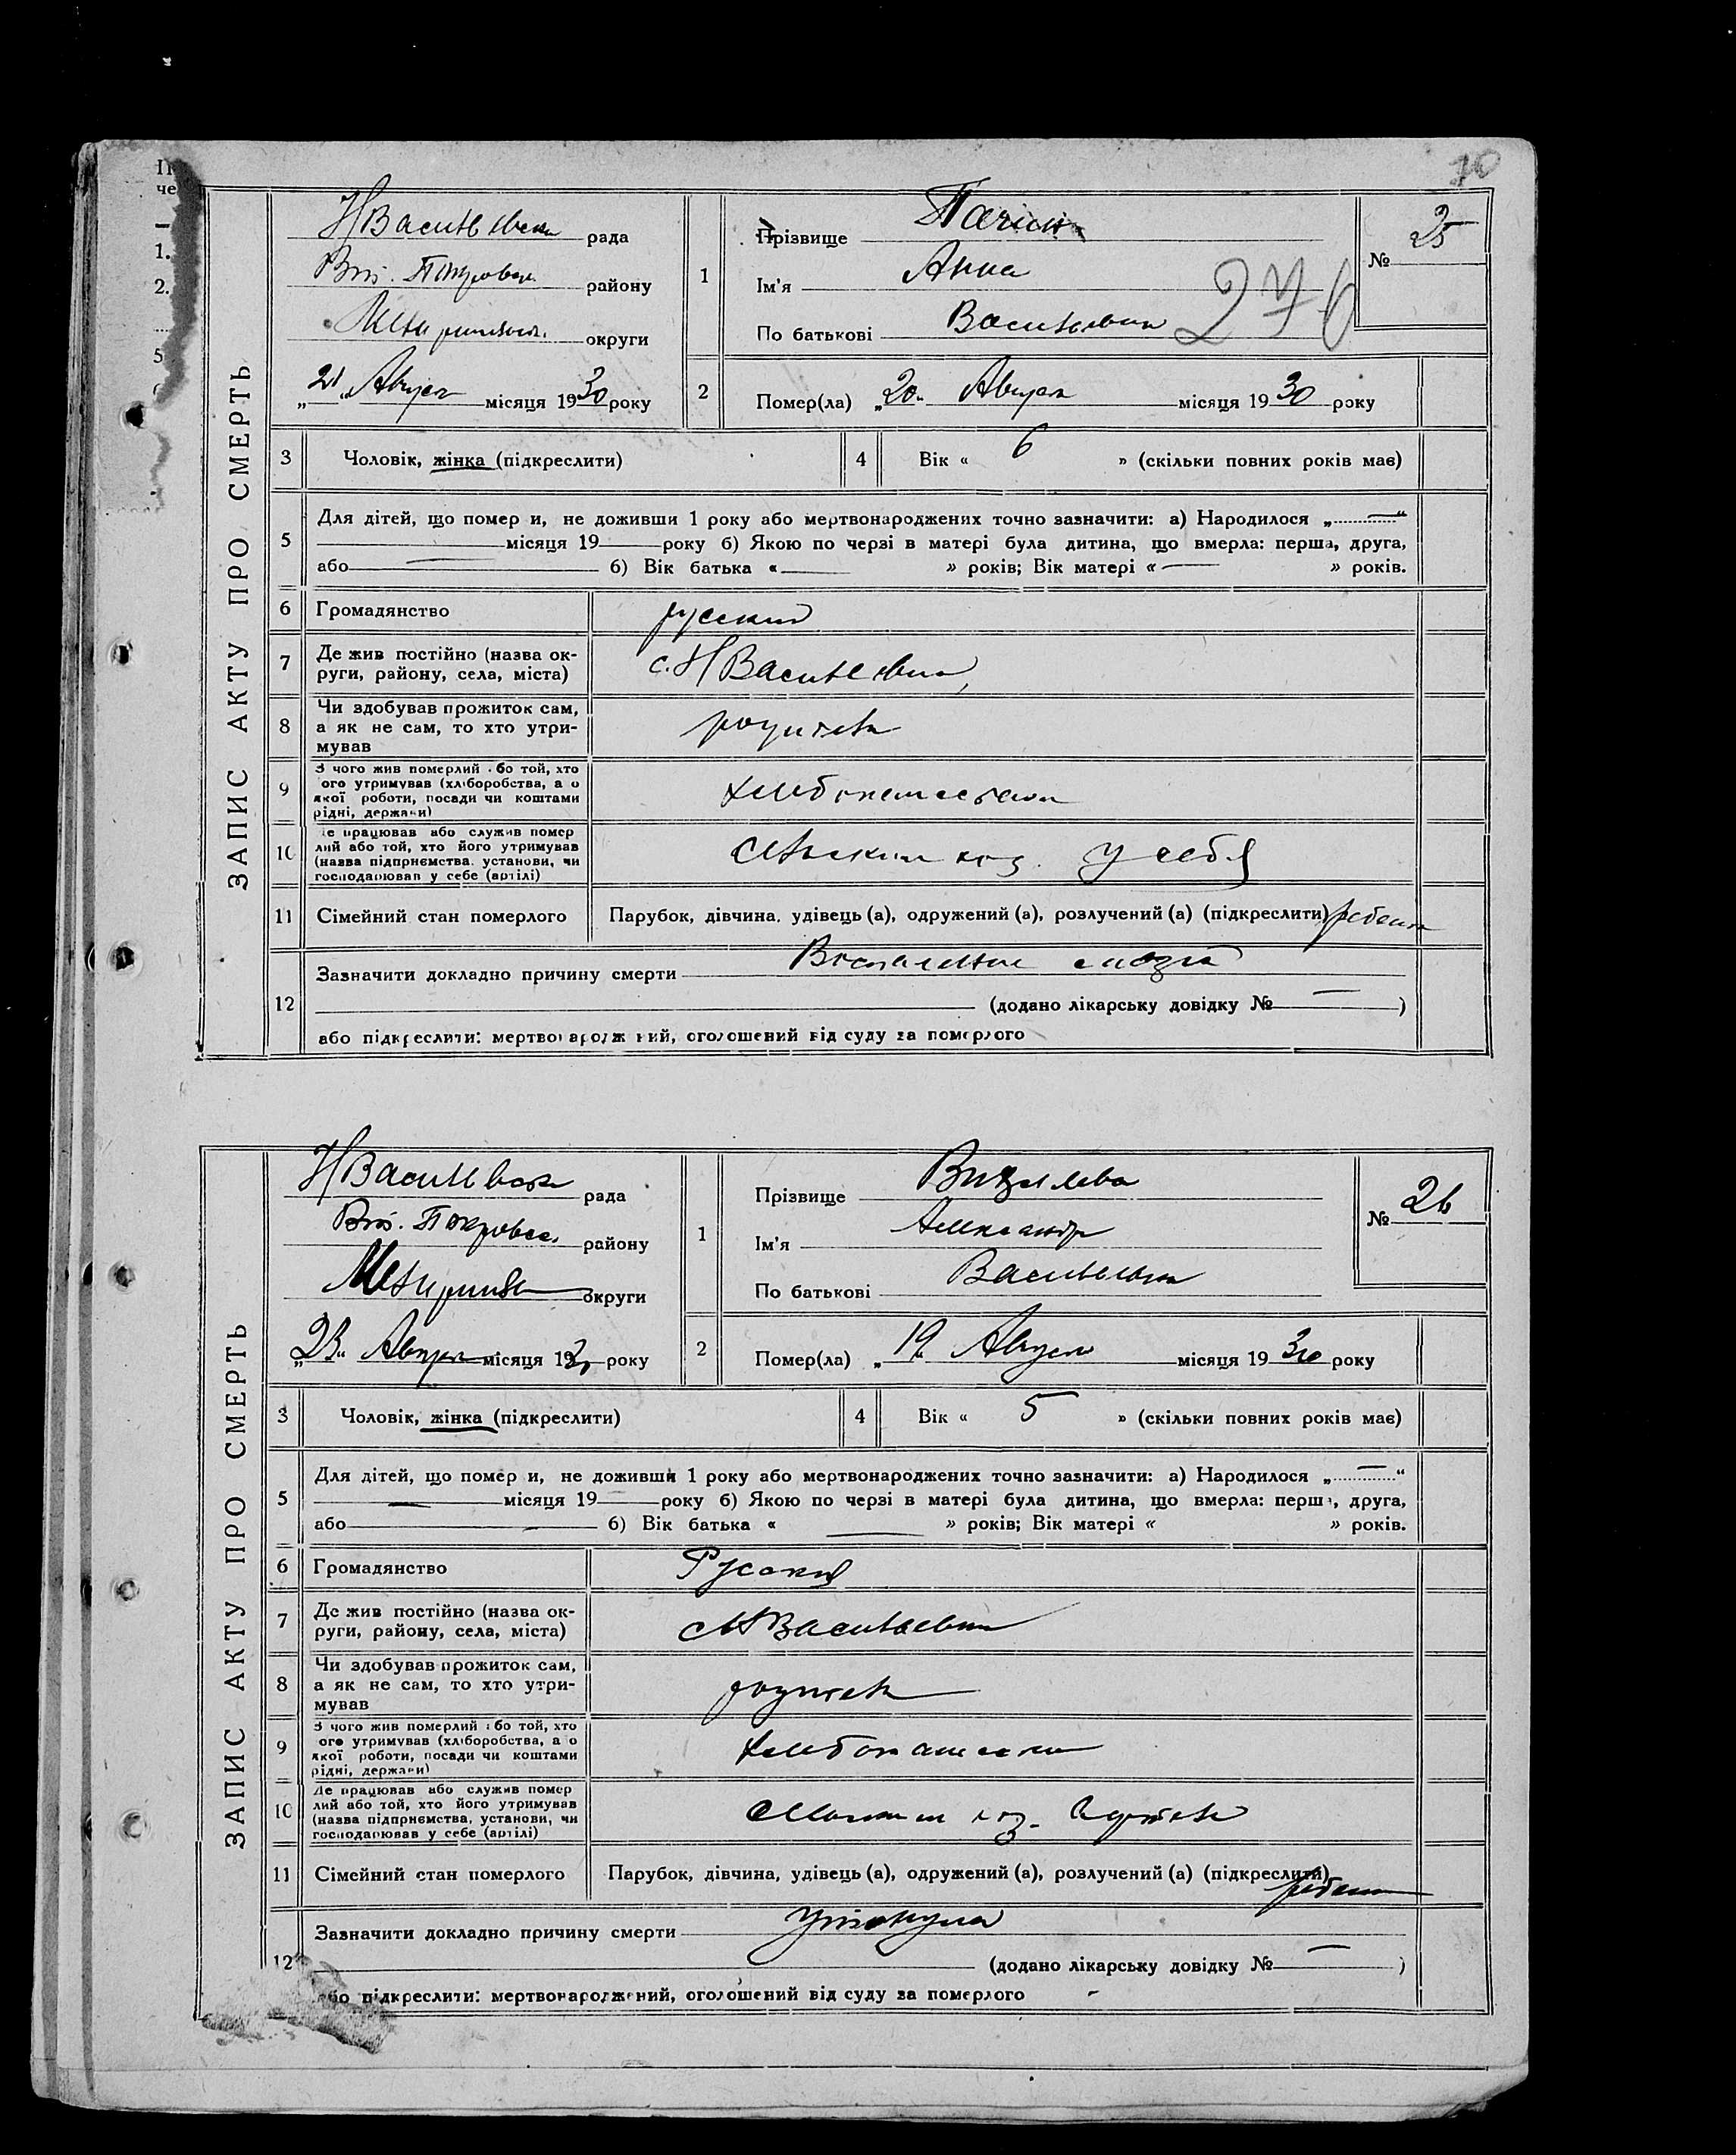 10
ЗАПИС АКТУ ПРО СМЕРТЬ
рада
району
округи
„21“ Август місяця 1930 року
1
Прізвище
Ім'я Анна
По батькові Васильевна
276
№ 25
2
Помер(ла) „20“ Августа місяця 1930 року
3
Чоловік, жінка (підкреслити)
4
Вік « 6 » (скільки повних років має)
5
Для дітей, що помер и, не доживши 1 року або мертвонароджених точно зазначити: а) Народилося „—“
місяця 19 року б) Якою по черзі в матері була дитина, що вмерла: перша, друга,
або — б) Вік батька « » років; Вік матері «— » років.
6
Громадянство русский
7
Де жив постійно (назва ок-
руги, району, села, міста)
с. Н Васильевка
8
Чи здобував прожиток сам,
а як не сам, то хто утри-
мував
родители
9
З чого жив померлий або той, хто
ого утримував (хліборобства, а о
якої роботи, посади чи коштами
рідні, держави)
10
е працював або служив помер
лий або той, хто його утримував
(назва підприємства, установи, чи
господарював у себе (артілі)
у себя
11
Сімейний стан померлого
Парубок, дівчина, удівець (а), одружений (а), розлучений (а) (підкреслити) ребенок
12
Зазначити докладно причину смерти Воспаление мозга
(додано лікарську довідку № — )
або підкреслити: мертвонароджений, оголошений від суду за померлого
ЗАПИС АКТУ ПРО СМЕРТЬ
рада
району
округи
„23“ Август місяця 1930 року
1
Прізвище
Ім'я Александр
По батькові Васильевна
№ 26
2
Помер(ла) „19“ Августа місяця 1930 року
3
Чоловік, жінка (підкреслити)
4
Вік « 5 » (скільки повних років має)
5
Для дітей, що помер и, не доживши 1 року або мертвонароджених точно зазначити: а) Народилося „—“
місяця 19 року б) Якою по черзі в матері була дитина, що вмерла: перша, друга,
або б) Вік батька « — » років; Вік матері « » років.
6
Громадянство Русский
7
Де жив постійно (назва ок-
руги, району, села, міста)
с Н Васильевка
8
Чи здобував прожиток сам,
а як не сам, то хто утри-
мував
родители
9
З чого жив померлий або той, хто
ого утримував (хліборобства, а о
якої роботи, посади чи коштами
рідні, держави)
10
Де працював або служив помер
лий або той, хто його утримував
(назва підприємства, установи, чи
господарював у себе (артілі)
11
Сімейний стан померлого
Парубок, дівчина, удівець (а), одружений (а), розлучений (а) (підкреслити) ребенок
12
Зазначити докладно причину смерти утонула
(додано лікарську довідку № — )
або підкреслити: мертвонароджений, оголошений від суду за померлого